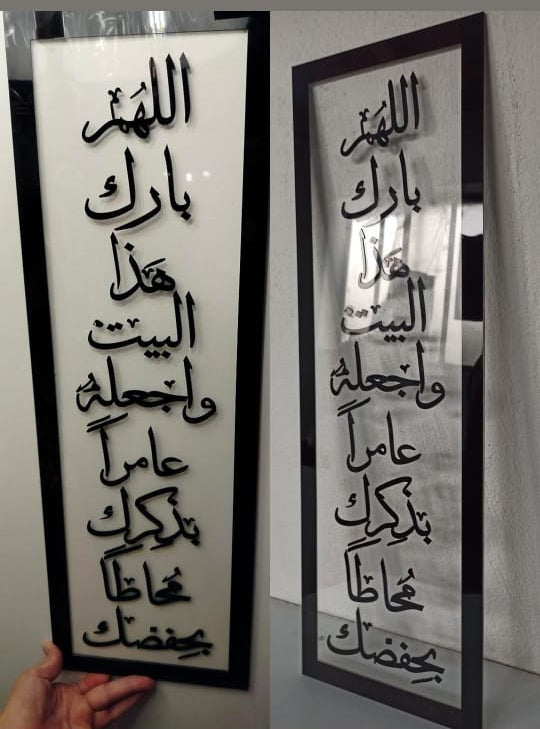 اللهم
بارك
هذا
البيت
واجعله
عامراً
بذكرك
محاطاً
بحفضك
اللهم
بارك
هذا
البيت
واجعله
عامراً
بذكرك
محاطاً
بحفضك